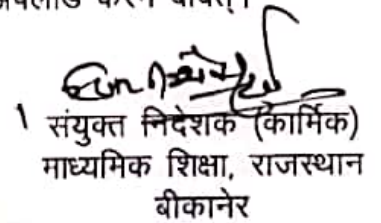 करने बाबत्।
1 संयुक्त निदेशक (कार्मिक)
माध्यमिक शिक्षा, राजस्थान
बीकानेर